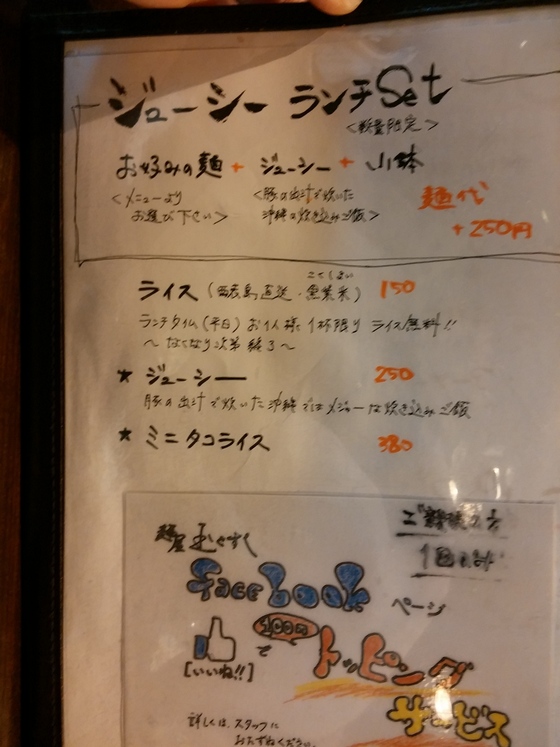 ジューシー ランチSet
<数量限定>
お好みの麺 + ジューシー + 小鉢
<メニューより
お選び下さい>
<豚の出汁で炊いた
沖縄の炊き込みご飯>
麺代
+250円
ライス (西表島直送・黒紫米) 150
ランチタイム(平日) お1人様 1杯限り ライス無料!!
～なくなり次第終了～
★ ジューシー 250
豚の出汁で炊いた沖縄ではメジャーな炊き込みご飯
★ ミニタコライス 380
ご新規の方
1回のみ
麺屋
facebook
ページ
[いいね!!]
で
100円
トッピング
サービス
詳しくは、スタッフに
おたずねください。